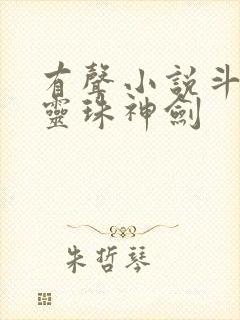 有聲小說斗
靈珠神劍
朱哲琴